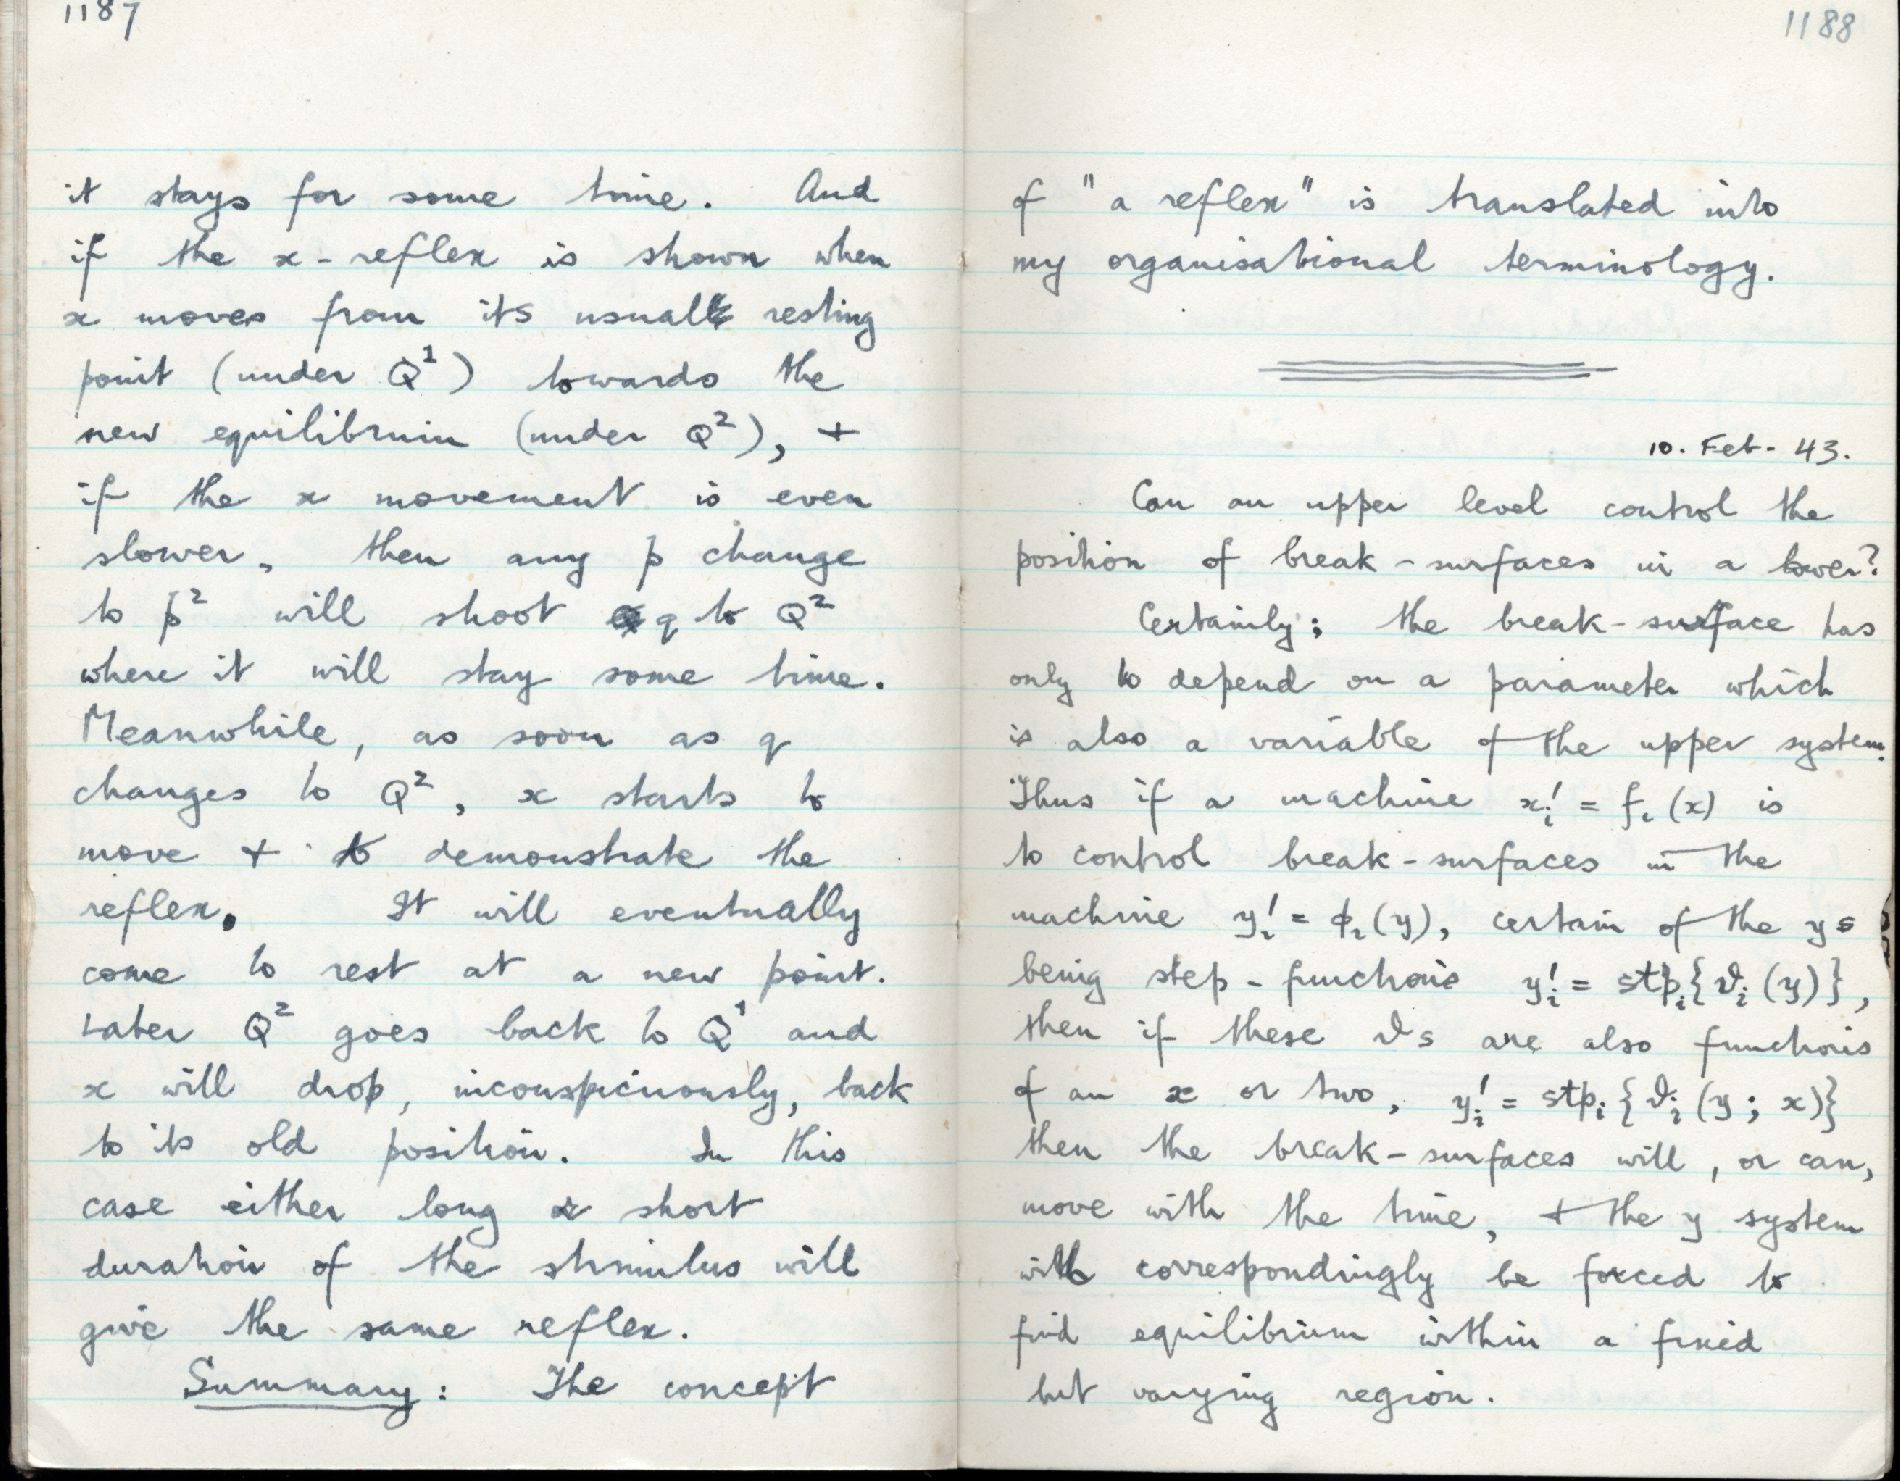 1187
it stays for some time. And
if the x-reflex is shown when
x moves from its usual resting
point (under Q¹) towards the
new equilibrium (under Q²), +
if the x movement is even
slower, then any p change
to p² will shoot q to Q²
where it will stay some time.
Meanwhile, as soon as q
changes to Q², x starts to
move + to demonstrate the
reflex. It will eventually
come to rest at a new point.
Later Q² goes back to Q¹ and
x will drop, inconspicuously, back
to its old position. In this
case either long or short
duration of the stimulus will
give the same reflex.
Summary: The concept
1188
of "a reflex" is translated into
my organisational terminology.
10. Feb. 43.
Can an upper level control the
position of break-surfaces in a lower?
Certainly; the break-surface has
only to depend on a parameter which
is also a variable of the upper system.
Thus if a machine xᵢ' = fᵢ(x) is
to control break-surfaces in the
machine yᵢ' = ϕᵢ(y), certain of the ys
being step-functions yᵢ' = stpᵢ{ϑᵢ(y)},
then if these ϑs are also functions
of an x or two, yᵢ' = stpᵢ{ϑᵢ(y; x)}
then the break-surfaces will, or can,
move with the time, + the y system
will correspondingly be forced to
find equilibrium within a fixed
but varying region.